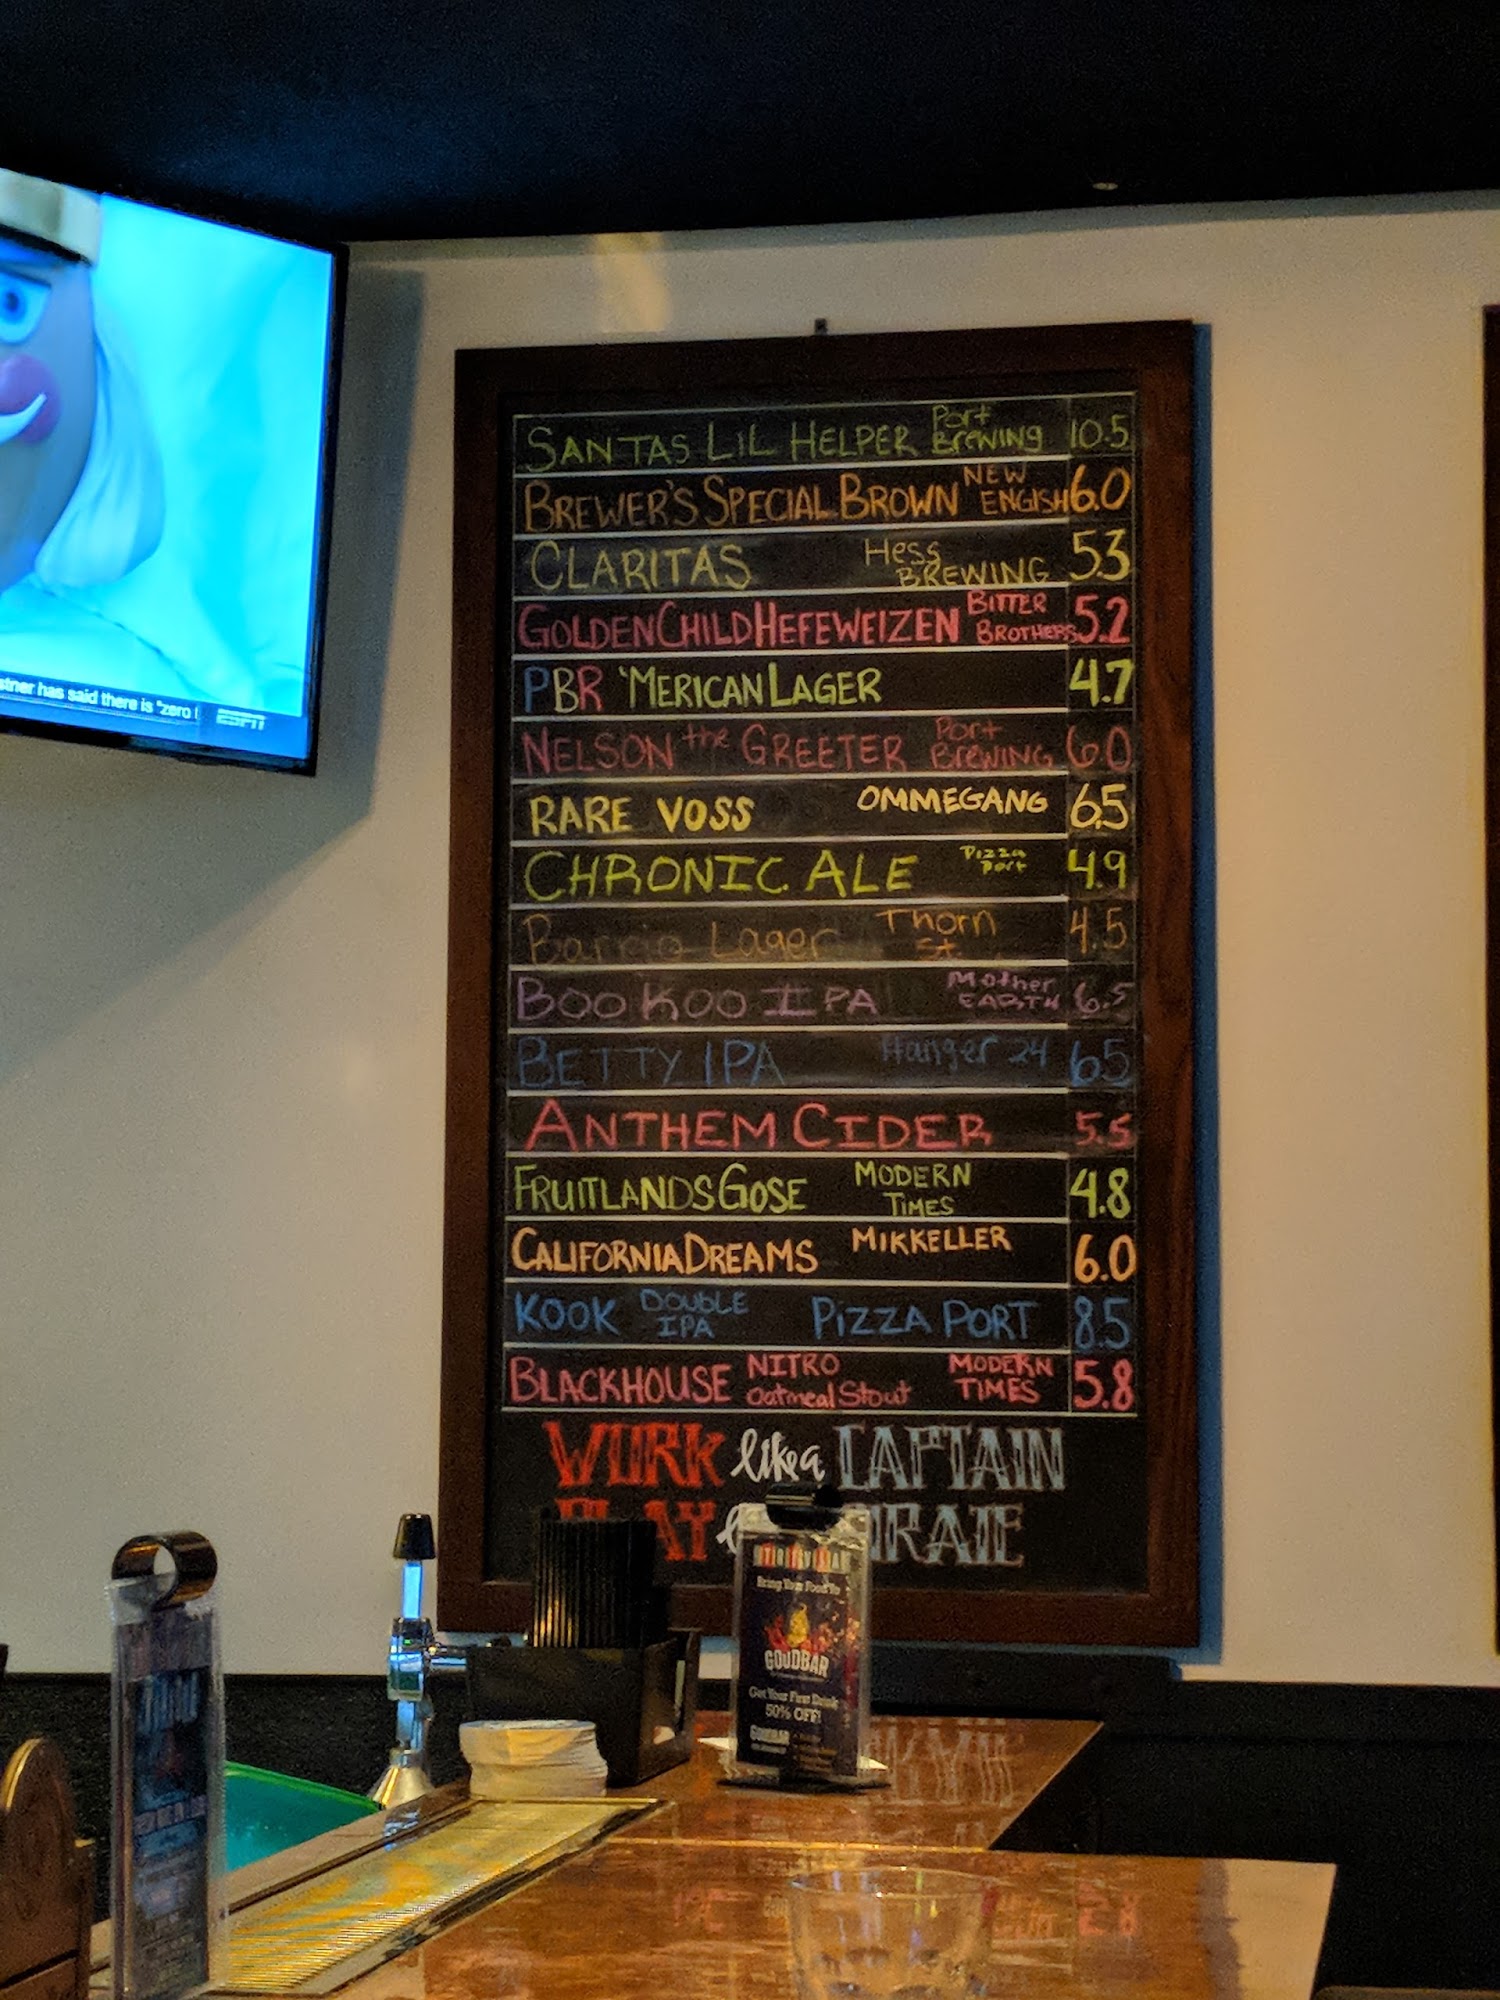 SANTAS LIL HELPER Port Brewing 10.5
BREWER'S SPECIAL BROWN NEW ENGISH 6.0
CLARITAS Hess BREWING 5.3
GOLDEN CHILD HEFEWEIZEN BITTER BROTHERS 5.2
PBR 'MERICAN LAGER 4.7
NELSON the GREETER Port Brewing 6.0
RARE VOSS OMMEGANG 6.5
CHRONIC ALE Pizza Port 4.9
Barrio Lager Thorn St. 4.5
BOO KOO IPA Mother EARTH 6.5
BETTY IPA Hanger 24 6.5
ANTHEM CIDER 5.5
FRUITLANDS GOSE MODERN TIMES 4.8
CALIFORNIA DREAMS MIKKELLER 6.0
KOOK DOUBLE IPA PIZZA PORT 8.5
BLACKHOUSE NITRO Oatmeal Stout MODERN TIMES 5.8
WORK like a CAPTAIN
PLAY PIRATE
stner has said there is "zero t
ESPN
Bring Your Food To
GOODBAR
Get Your First Drink
50% OFF!
GOODBAR